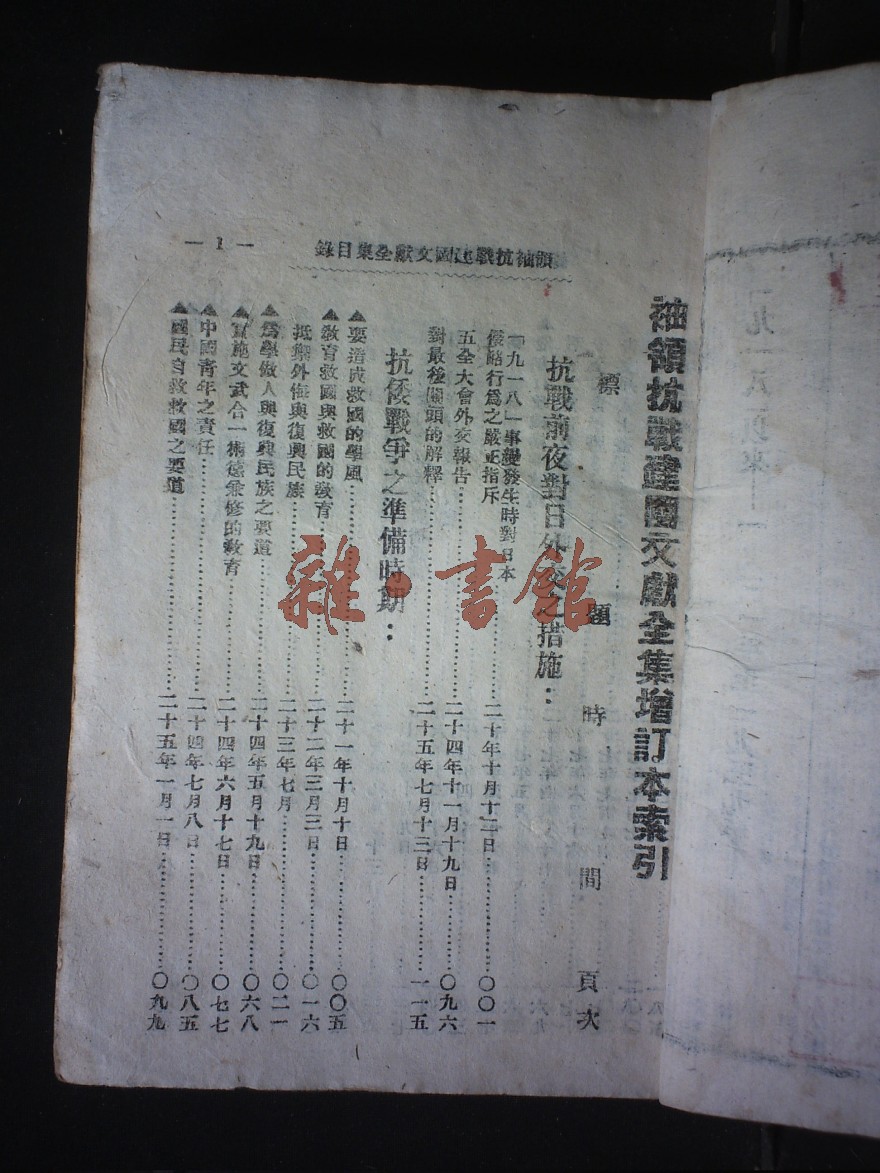 領袖抗戰建國文獻全集目錄
— 1 —
袖領抗戰建國文獻全集增訂本索引
標題 時間 頁次
抗戰前夜對日外交之措施：
「九一八」事變發生時對日本
侵略行爲之嚴正指斥……二十年十月十二日……〇〇一
五全大會外交報告……二十四年十一月十九日……〇九六
對最後關頭的解釋……二十五年七月十三日……一一五
抗倭戰爭之準備時期：
▲要造成救國的學風……二十一年十月十日……〇〇五
▲敎育救國與救國的敎育……二十二年三月三日……〇一六
抵禦外侮與復興民族……二十三年七月……〇二一
▲爲學做人與復興民族之要道……二十四年五月十九日……〇六八
▲實施文武合一術德兼修的敎育……二十四年六月十七日……〇七七
▲中國靑年之責任……二十四年七月八日……〇八五
▲國民自救救國之要道……二十五年一月一日……〇九九
雜·書館